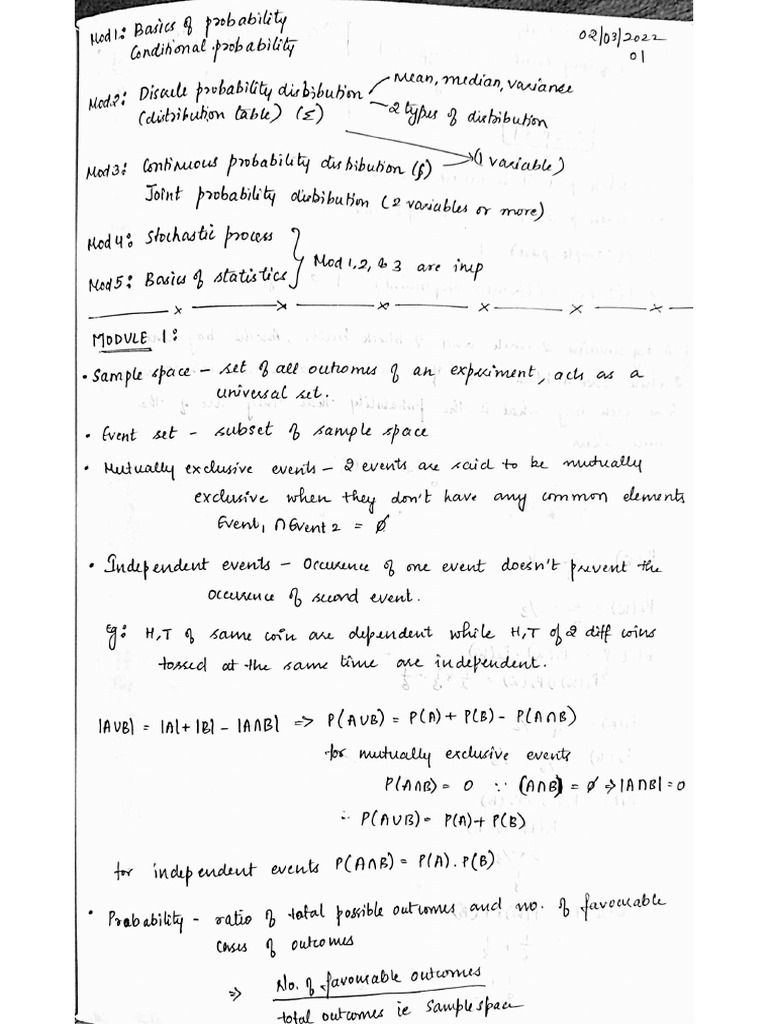 Mod1: Basics of probability
Conditional probability
02/03/2022
01
Mod2: Discrete probability distribution
(distribution table) (Σ)
Mean, median, variance
2 types of distribution
Mod3: Continuous probability distribution (∫)
(1 variable)
Joint probability distribution (2 variables or more)
Mod4: Stochastic process
Mod5: Basics of statistics
Mod 1, 2, & 3 are imp
MODULE 1:
• Sample space - set of all outcomes of an experiment, acts as a
universal set.
• Event set - subset of sample space
• Mutually exclusive events - 2 events are said to be mutually
exclusive when they don't have any common elements
Event1 ∩ Event 2 = ∅
• Independent events - Occurence of one event doesn't prevent the
occurence of second event.
Eg: H,T of same coin are dependent while H,T of 2 diff coins
tossed at the same time are independent.
|A∪B| = |A| + |B| - |A∩B| => P(A∪B) = P(A) + P(B) - P(A∩B)
for mutually exclusive events
P(A∩B) = 0 ∵ (A∩B) = ∅ => |A∩B| = 0
∴ P(A∪B) = P(A) + P(B)
for independent events P(A∩B) = P(A). P(B)
• Probability - ratio of total possible outcomes and no. of favourable
cases of outcomes
=> No. of favourable outcomes
total outcomes ie sample space